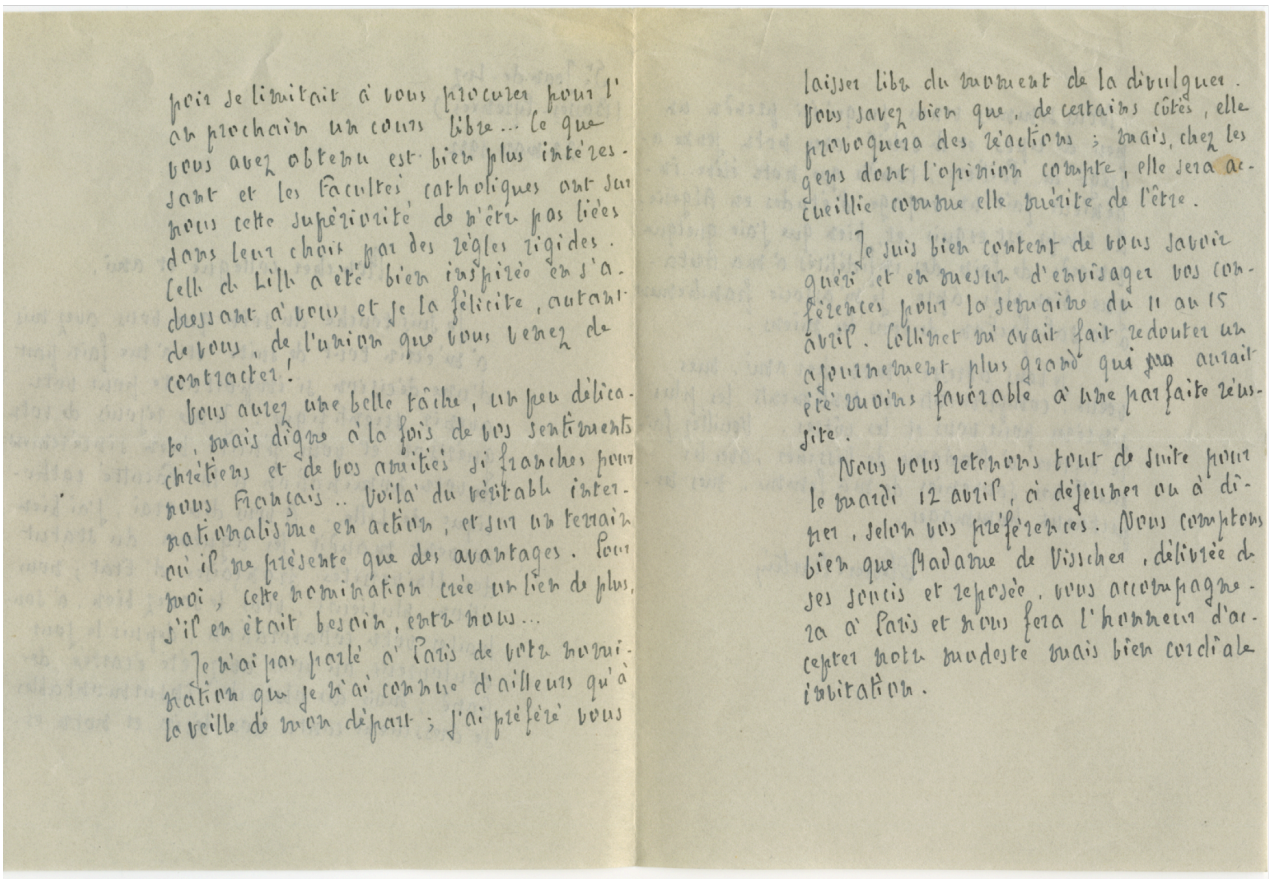 poir se limitait à vous procurer pour l'
an prochain un cours libre... Ce que
vous avez obtenu est bien plus intéres-
sant et les Facultés catholiques ont sur
nous cette supériorité de n'être pas liées
dans leur choix par des règles rigides.
Celle de Lille a été bien inspirée en s'a-
dressant à vous et je la félicite, autant
de vous, de l'union que vous venez de
contracter!
Vous aurez une belle tâche, un peu délica-
te, mais digne à la fois de vos sentiments
chrétiens et de vos amitiés si franches pour
nous Français.. Voilà du véritable inter-
nationalisme en action, et sur un terrain
où il ne présente que des avantages. Pour
moi, cette nomination crée un lien de plus,
s'il en était besoin, entre nous...
Je n'ai pas parlé à Paris de votre nomi-
nation que je n'ai connue d'ailleurs qu'à
la veille de mon départ ; j'ai préféré vous
laisser libre du moment de la divulguer.
Vous savez bien que, de certains côtés, elle
provoquera des réactions ; mais, chez les
gens dont l'opinion compte, elle sera ac-
cueillie comme elle mérite de l'être.
Je suis bien content de vous savoir
guéri et en mesure d'envisager vos con-
férences pour la semaine du 11 au 15
avril. Collinet m'avait fait redouter un
ajournement plus grand qui aurait
été moins favorable à une parfaite réus-
site.
Nous vous retenons tout de suite pour
le mardi 12 avril, à déjeuner ou à dî-
ner, selon vos préférences. Nous comptons
bien que Madame de Visscher, délivrée de
ses soucis et reposée, vous accompagne-
ra à Paris et nous fera l'honneur d'ac-
cepter notre modeste mais bien cordiale
invitation.